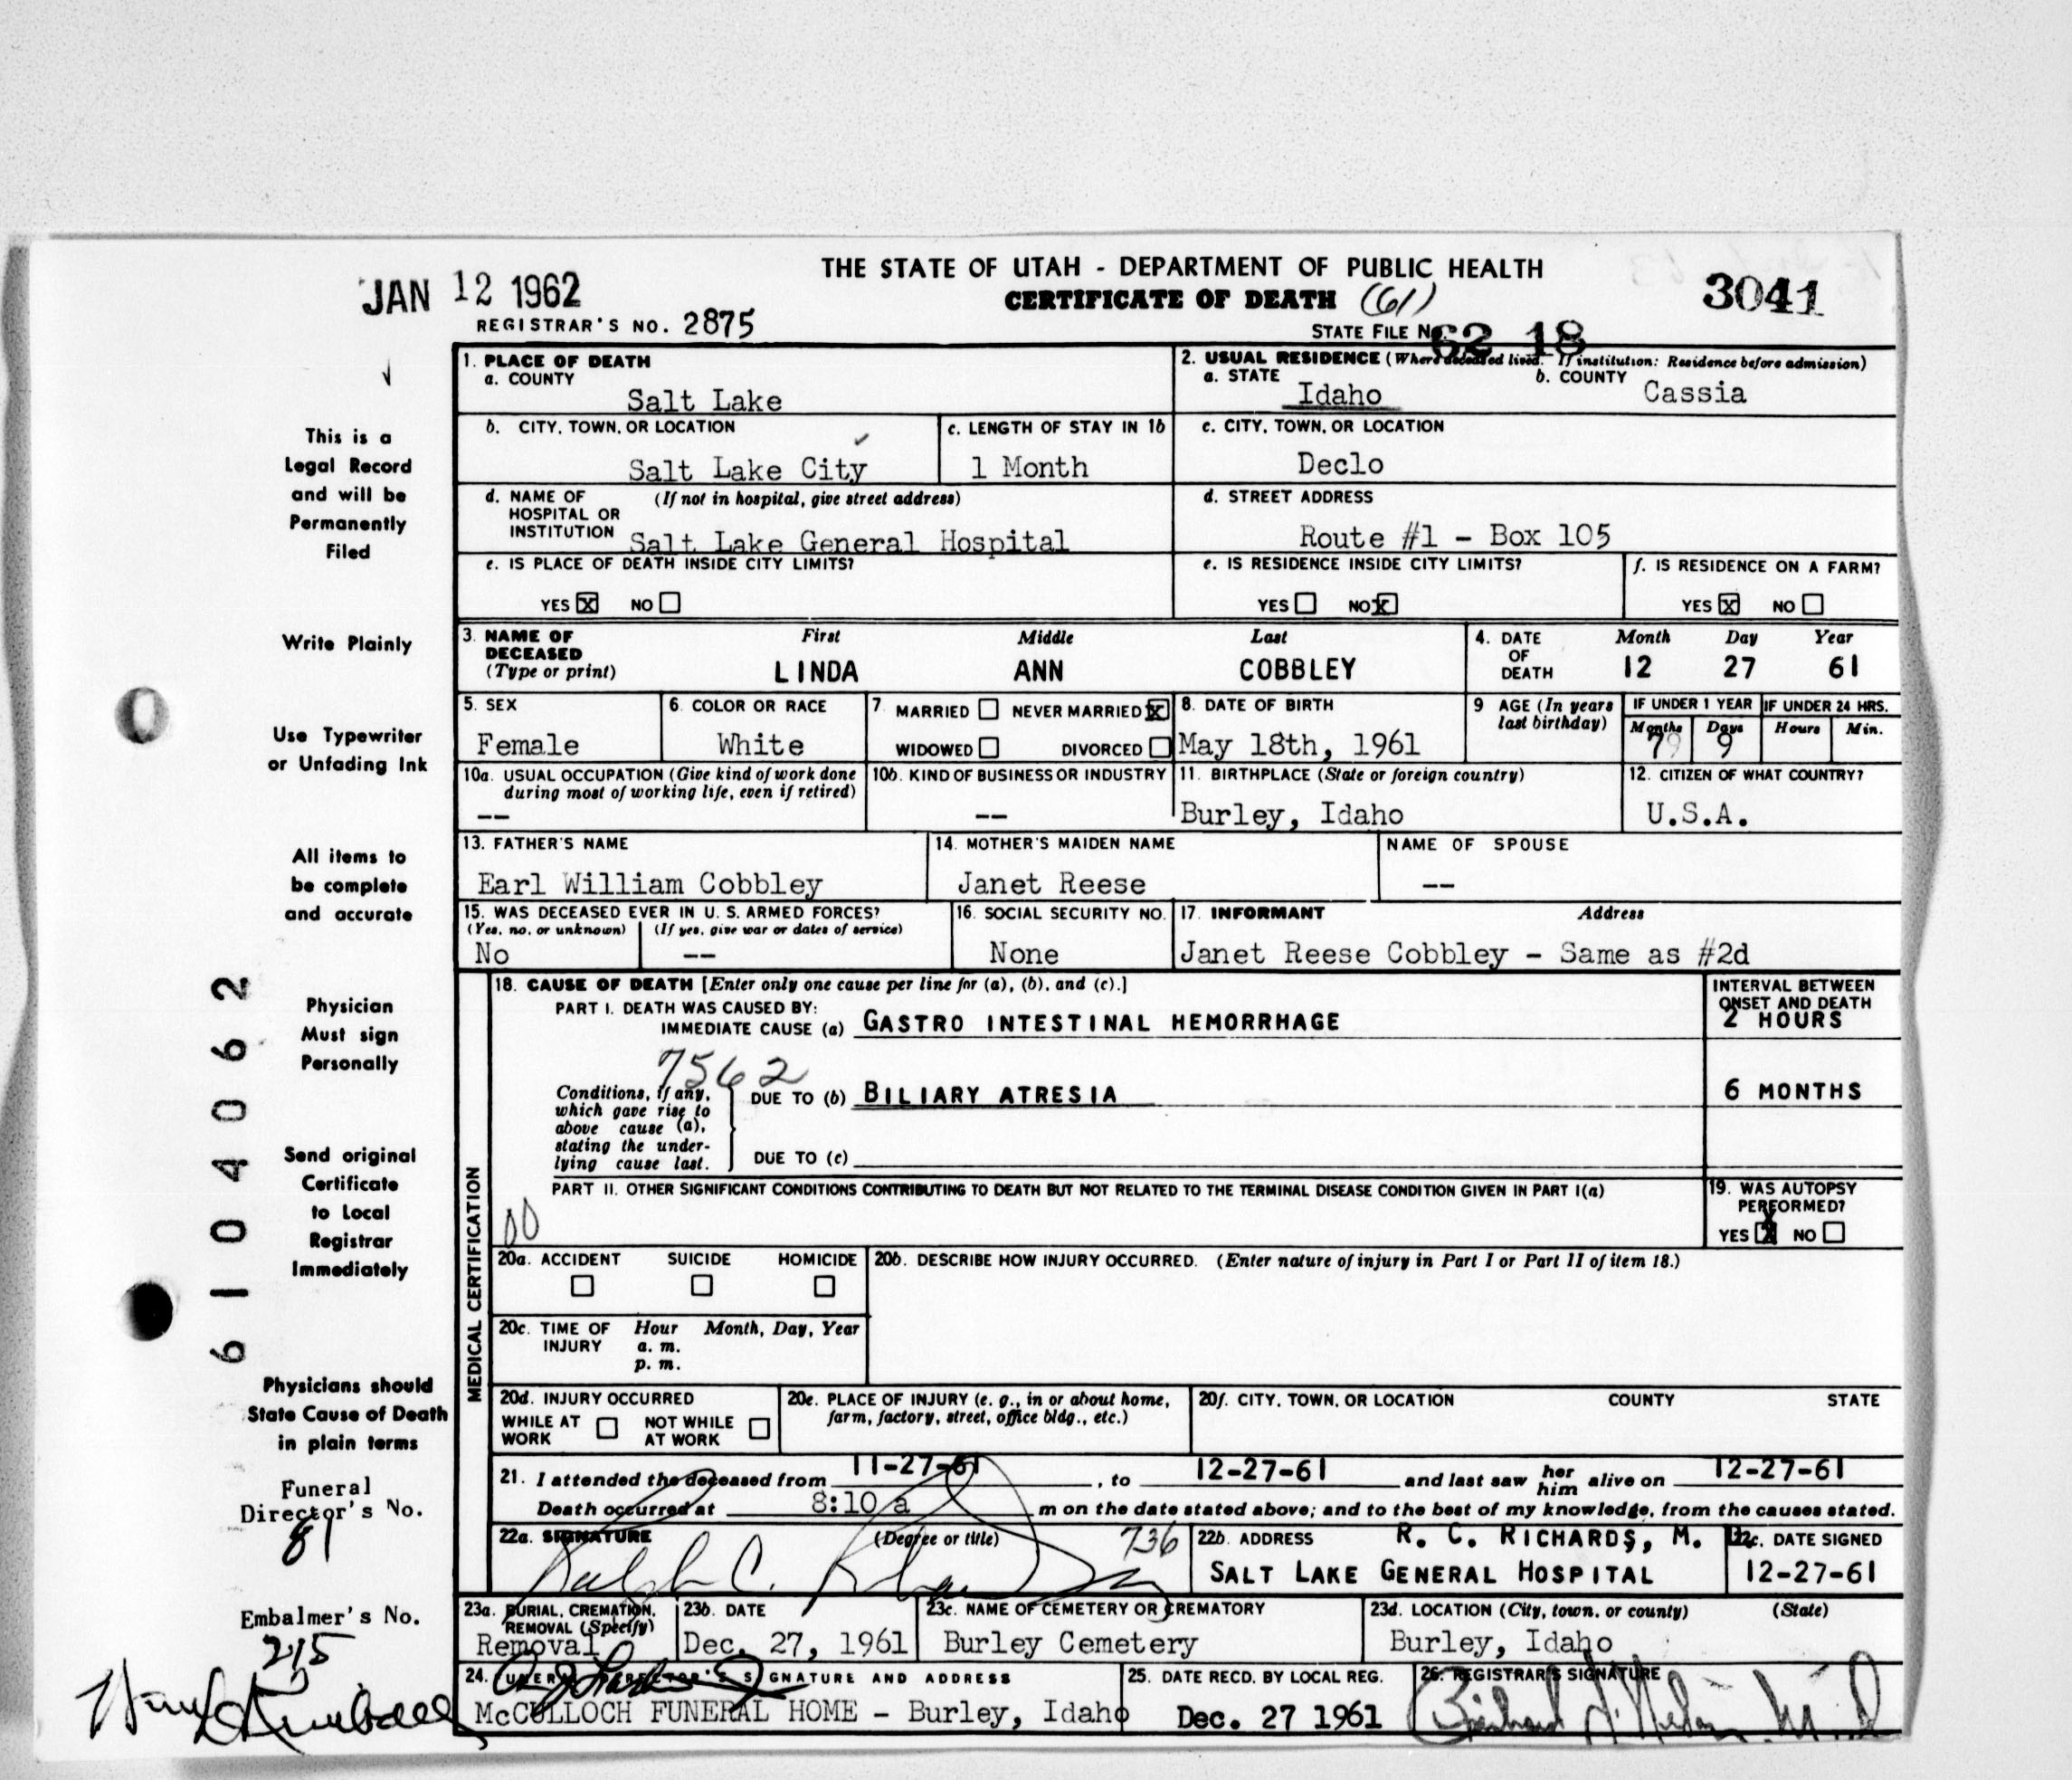 THE STATE OF UTAH - DEPARTMENT OF PUBLIC HEALTH
JAN 12 1962 CERTIFICATE OF DEATH (61) 3041
REGISTRAR'S NO. 2875 STATE FILE No. 62 18
1. PLACE OF DEATH
a. COUNTY
Salt Lake
2. USUAL RESIDENCE (Where deceased lived. If institution: Residence before admission)
a. STATE Idaho b. COUNTY Cassia
b. CITY, TOWN, OR LOCATION
Salt Lake City
c. LENGTH OF STAY IN 1b
1 Month
c. CITY, TOWN, OR LOCATION
Declo
d. NAME OF HOSPITAL OR INSTITUTION (If not in hospital, give street address)
Salt Lake General Hospital
d. STREET ADDRESS
Route #1 - Box 105
e. IS PLACE OF DEATH INSIDE CITY LIMITS?
YES X NO
e. IS RESIDENCE INSIDE CITY LIMITS?
YES NO X
f. IS RESIDENCE ON A FARM?
YES X NO
3. NAME OF DECEASED (Type or print)
First Middle Last
LINDA ANN COBBLEY
4. DATE OF DEATH
Month Day Year
12 27 61
5. SEX
Female
6. COLOR OR RACE
White
7. MARRIED NEVER MARRIED X
WIDOWED DIVORCED
8. DATE OF BIRTH
May 18th, 1961
9 AGE (In years last birthday)
IF UNDER 1 YEAR IF UNDER 24 HRS.
Months Days Hours Min.
7 9
10a. USUAL OCCUPATION (Give kind of work done
during most of working life, even if retired)
--
10b. KIND OF BUSINESS OR INDUSTRY
--
11. BIRTHPLACE (State or foreign country)
Burley, Idaho
12. CITIZEN OF WHAT COUNTRY?
U.S.A.
13. FATHER'S NAME
Earl William Cobbley
14. MOTHER'S MAIDEN NAME
Janet Reese
NAME OF SPOUSE
--
15. WAS DECEASED EVER IN U. S. ARMED FORCES?
(Yes, no, or unknown) (If yes, give war or dates of service)
No --
16. SOCIAL SECURITY NO.
None
17. INFORMANT Address
Janet Reese Cobbley - Same as #2d
MEDICAL CERTIFICATION
18. CAUSE OF DEATH [Enter only one cause per line for (a), (b), and (c).]
PART I. DEATH WAS CAUSED BY:
IMMEDIATE CAUSE (a) GASTRO INTESTINAL HEMORRHAGE
INTERVAL BETWEEN
ONSET AND DEATH
2 HOURS
7562
Conditions, if any,
which gave rise to
above cause (a),
stating the under-
lying cause last.
DUE TO (b) BILIARY ATRESIA
6 MONTHS
DUE TO (c)
PART II. OTHER SIGNIFICANT CONDITIONS CONTRIBUTING TO DEATH BUT NOT RELATED TO THE TERMINAL DISEASE CONDITION GIVEN IN PART I(a)
00
19. WAS AUTOPSY
PERFORMED?
YES X NO
20a. ACCIDENT SUICIDE HOMICIDE
20b. DESCRIBE HOW INJURY OCCURRED. (Enter nature of injury in Part I or Part II of item 18.)
20c. TIME OF INJURY
Hour Month, Day, Year
a. m.
p. m.
20d. INJURY OCCURRED
WHILE AT WORK NOT WHILE AT WORK
20e. PLACE OF INJURY (e. g., in or about home,
farm, factory, street, office bldg., etc.)
20f. CITY, TOWN, OR LOCATION COUNTY STATE
21. I attended the deceased from 11-27-61, to 12-27-61 and last saw her him alive on 12-27-61
Death occurred at 8:10 a m on the date stated above; and to the best of my knowledge, from the causes stated.
22a. SIGNATURE (Degree or title) 736
Ralph C. Richards
22b. ADDRESS R. C. RICHARDS, M.
SALT LAKE GENERAL HOSPITAL
22c. DATE SIGNED
12-27-61
23a. BURIAL, CREMATION,
REMOVAL (Specify)
Removal
23b. DATE
Dec. 27, 1961
23c. NAME OF CEMETERY OR CREMATORY
Burley Cemetery
23d. LOCATION (City, town, or county) (State)
Burley, Idaho
24. FUNERAL DIRECTOR'S SIGNATURE AND ADDRESS
McCULLOCH FUNERAL HOME - Burley, Idaho
25. DATE RECD. BY LOCAL REG.
Dec. 27 1961
26. REGISTRAR'S SIGNATURE
This is a
Legal Record
and will be
Permanently
Filed
Write Plainly
Use Typewriter
or Unfading Ink
All items to
be complete
and accurate
Physician
Must sign
Personally
Send original
Certificate
to Local
Registrar
Immediately
Physicians should
State Cause of Death
in plain terms
Funeral
Director's No.
81
Embalmer's No.
215
6104062